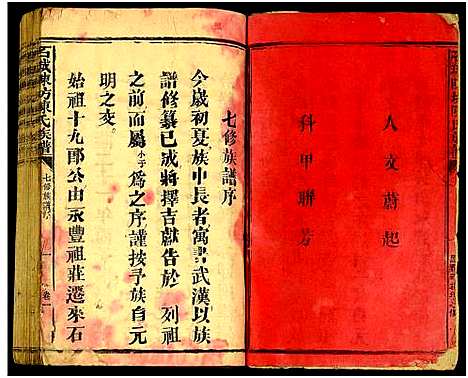 人文蔚起
科甲聯芳
七修族譜序
今歲初夏族中長者寓書武漢以族
譜修纂已成將擇吉獻告於 列祖
之前而屬小子為之序謹按予族自元
明之交
始祖十九郎公由永豐祖莊遷來石
石城陳坊陳氏族譜
七修族譜序
一
卷一